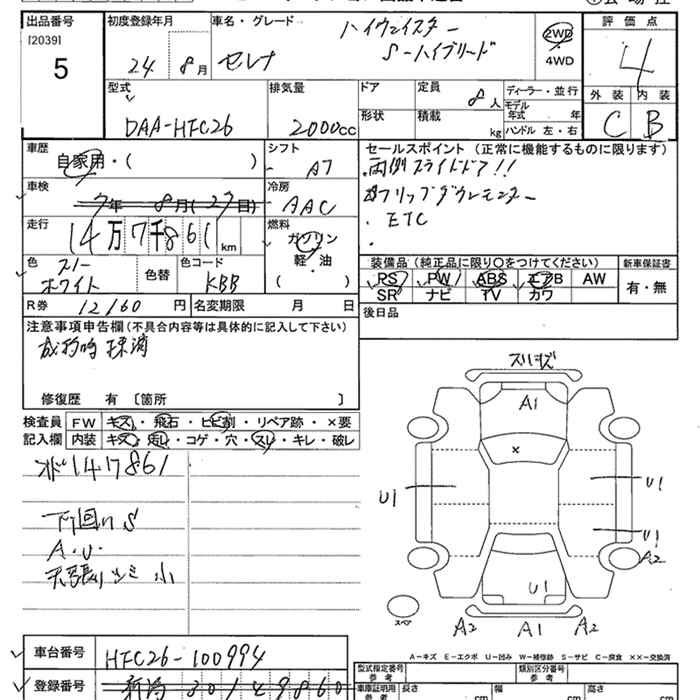 出品番号
[2039]
5
初度登録年月
24 8月
車名・グレード
ハイウェイスター
セレナ S-ハイブリード
2WD
4WD
評価点
4
外装 内装
C B
型式
DAA-HFC26
排気量
2000cc
ドア
形状
定員
8人
積載 kg
ディーラー・並行
モデル年式 年
ハンドル 左・右
車歴
自家用・( )
シフト
AT
セールスポイント (正常に機能するものに限ります)
両側スライドドア!!
フリップダウンモニター
ETC
車検
7年 8月(27日)
冷房
AAC
走行
14万7千861km
燃料
ガソリン
軽・油
( )
色
ホワイト
色替
色コード
KBB
装備品 (純正品に限り〇をつけてください)
PS PW ABS エアB AW
SR ナビ TV カワ
新車保証書
有・無
R券 12160円
名変期限 月 日
後日品
注意事項申告欄(不具合内容等は具体的に記入して下さい)
修復歴 有 〔箇所 〕
検査員
記入欄
FW キズ・飛石・ヒビ割・リペア跡・×要
内装 キズ・汚れ・コゲ・穴・スレ・キレ・破レ
147861
下回りS
A.U.
小
スリキズ
A1
×
U1
U1
U1
A2
U1
スペア
A2 A1 A2
A-キズ E-エクボ U-凹み W-補修跡 S-サビ C-腐食 ××-交換済
車台番号 HFC26-100994
登録番号 新潟 301 ４9860
型式指定番号
参考
類別区分番号
参考
車庫証明用
参考
長さ cm
幅 cm
高さ cm